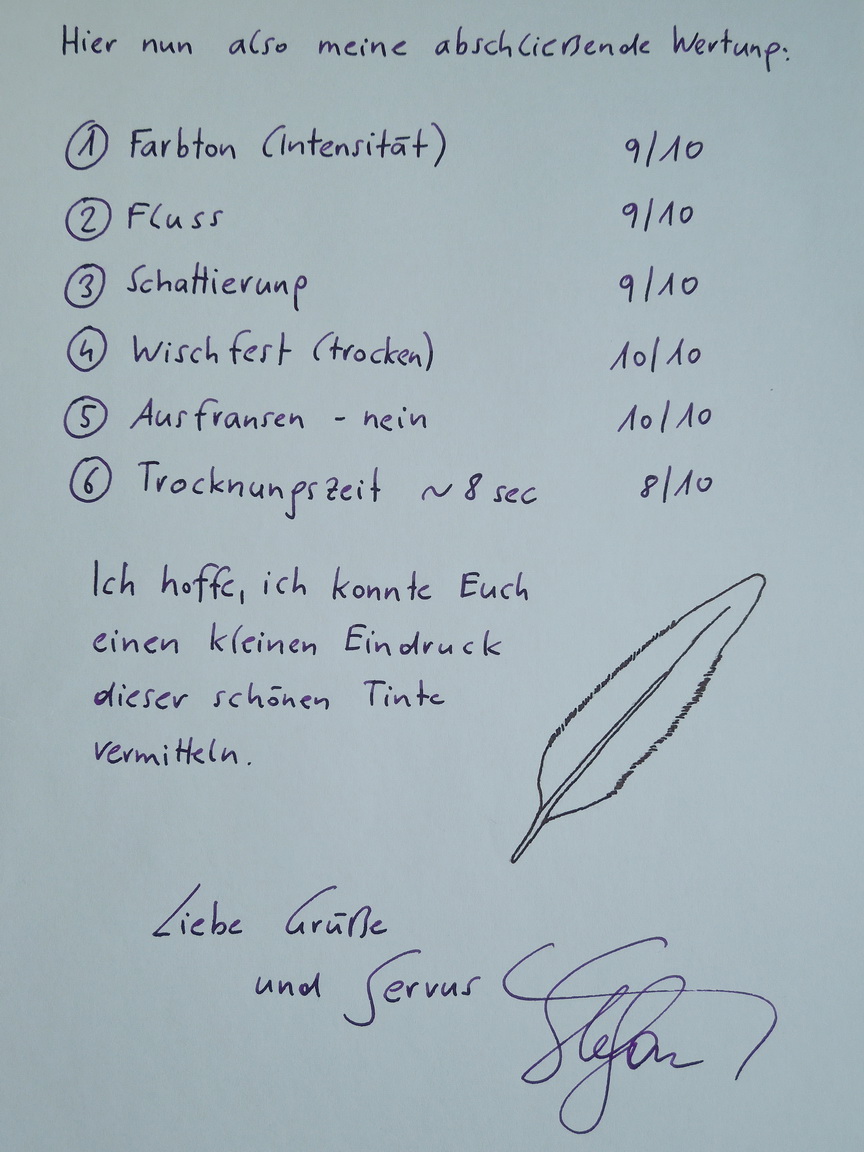 Hier nun also meine abschließende Wertung:
① Farbton (Intensität) 9/10
② Fluss 9/10
③ Schattierung 9/10
④ Wischfest (trocken) 10/10
⑤ Ausfransen - nein 10/10
⑥ Trocknungszeit ~ 8 sec 8/10
Ich hoffe, ich konnte Euch
einen kleinen Eindruck
dieser schönen Tinte
vermitteln.
Liebe Grüße
und Servus Stefan